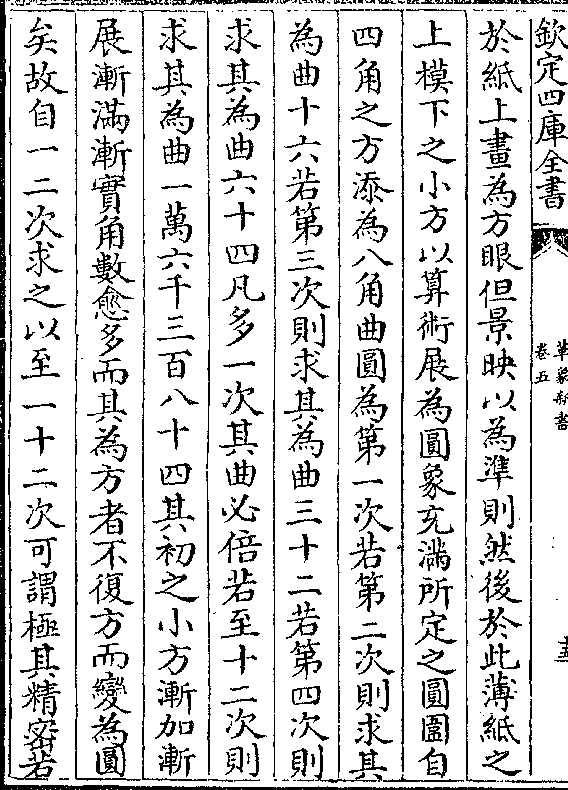 欽定四庫全書
革象新書
卷五
於紙上畫為方眼但景映以為準則然後於此薄紙之
上模下之小方以算術展為圓象充滿所定之圓圍自
四角之方添為八角曲圓為第一次若第二次則求其
為曲十六若第三次則求其為曲三十二若第四次則
求其為曲六十四凡多一次其曲必倍若至十二次則
求其為曲一萬六千三百八十四其初之小方漸加漸
展漸滿漸實角數愈多而其為方者不復方而變為圓
矣故自一二次求之以至一十二次可謂極其精密若